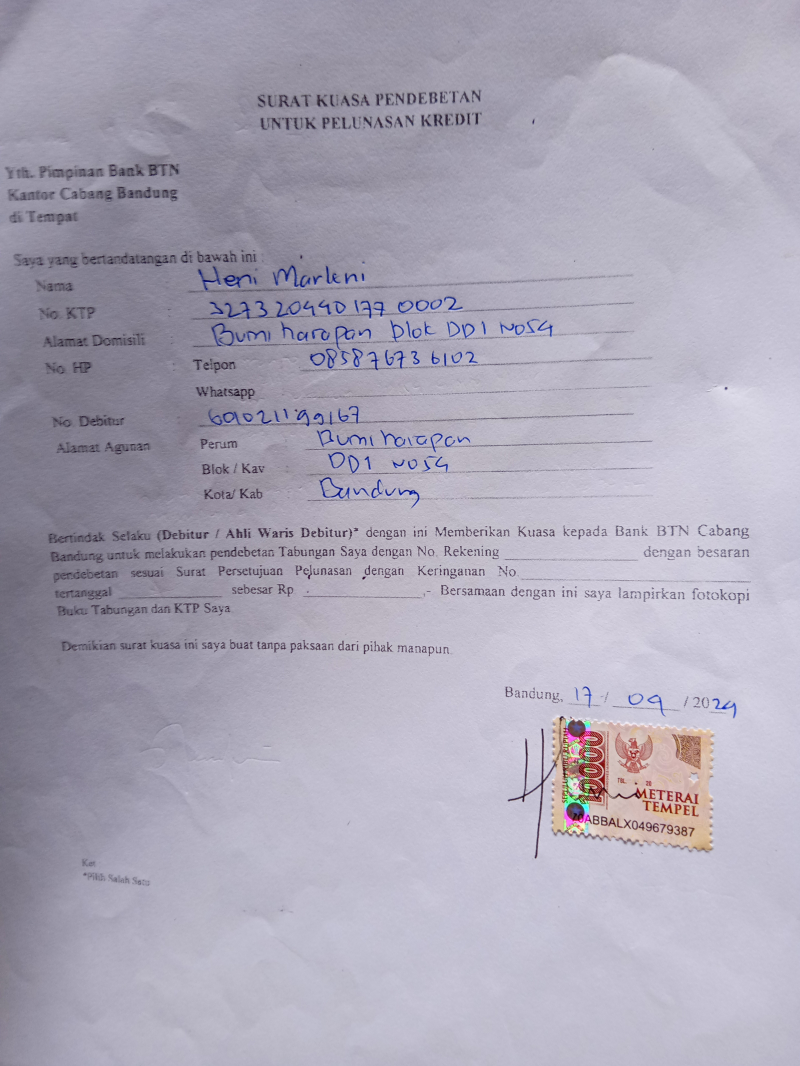 SURAT KUASA PENDEBETAN
UNTUK PELUNASAN KREDIT
Yth. Pimpinan Bank BTN
Kantor Cabang Bandung
di Tempat
Saya yang bertandatangan di bawah ini :
Nama : Heni Marleni
No. KTP : 3273204401770002
Alamat Domisili : Bumi harapan blok DD1 No54
No. HP : Telpon : 085876736102
Whatsapp :
No. Debitur : 69021199167
Alamat Agunan : Perum : Bumi harapan
Blok / Kav : DD1 No54
Kota/ Kab : Bandung
Bertindak Selaku (Debitur / Ahli Waris Debitur)* dengan ini Memberikan Kuasa kepada Bank BTN Cabang
Bandung untuk melakukan pendebetan Tabungan Saya dengan No. Rekening ____________ dengan besaran
pendebetan sesuai Surat Persetujuan Pelunasan dengan Keringanan No.____________
tertanggal ____________ sebesar Rp. ____________,- Bersamaan dengan ini saya lampirkan fotokopi
Buku Tabungan dan KTP Saya.
Demikian surat kuasa ini saya buat tanpa paksaan dari pihak manapun.
Bandung, 17 / 09 / 2024
10000
TGL. 20
METERAI
TEMPEL
ABBALX049679387
Ket
*Pilih Salah Satu